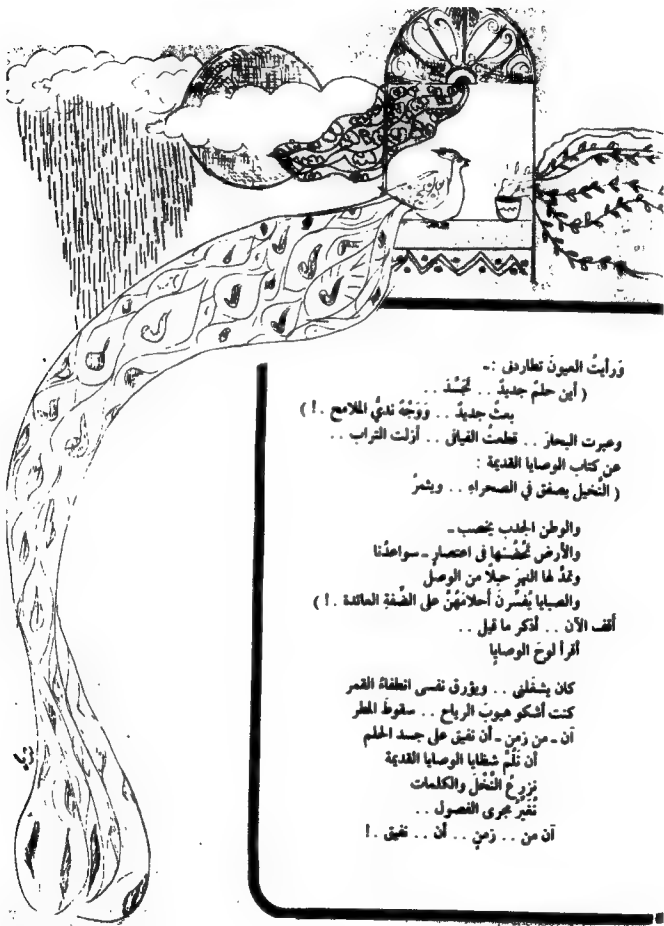 وَرأيتُ العيونَ تطاردنى :ـ
( أين حلمٌ جديدٌ . . تَجَسَّدَ . .
بعثٌ جديدٌ . . وَوَجْهٌ نديُّ الملامح . ! )
وعبرت البحارَ . . قطعتُ الفيافى . . أزلت التراب . .
عن كتاب الوصايا القديمة :
( النَّخيل يصفق في الصحراءِ . . ويثمرُ
والوطن الجدب يخصب ـ
والأرض تَحْضُنها فى اعتصارٍ ـ سواعدُنا
ونمدُّ لها النهرَ حبلاً من الوصل
والصبايا يُفسِّرنَ أحلامَهُنَّ على الضِّفةِ العائدة . ! )
أقف الآن . . أذكر ما قيل . .
أقرأ لوحَ الوصايا
كان يشغلنى . . ويؤرق نفسى انطفاءُ القمر
كنت أشكو هبوبَ الرياح . . سقوطَ المطر
آن ـ من زمنٍ ـ أن نفيق على جسد الحلم
أن نَلُمَّ شظايا الوصايا القديمة
نزرعُ النَّخْلَ والكلمات
نُغَيِّرُ مجرى الفصول . .
آن من . . زمنٍ . . أن . . نفيق . !